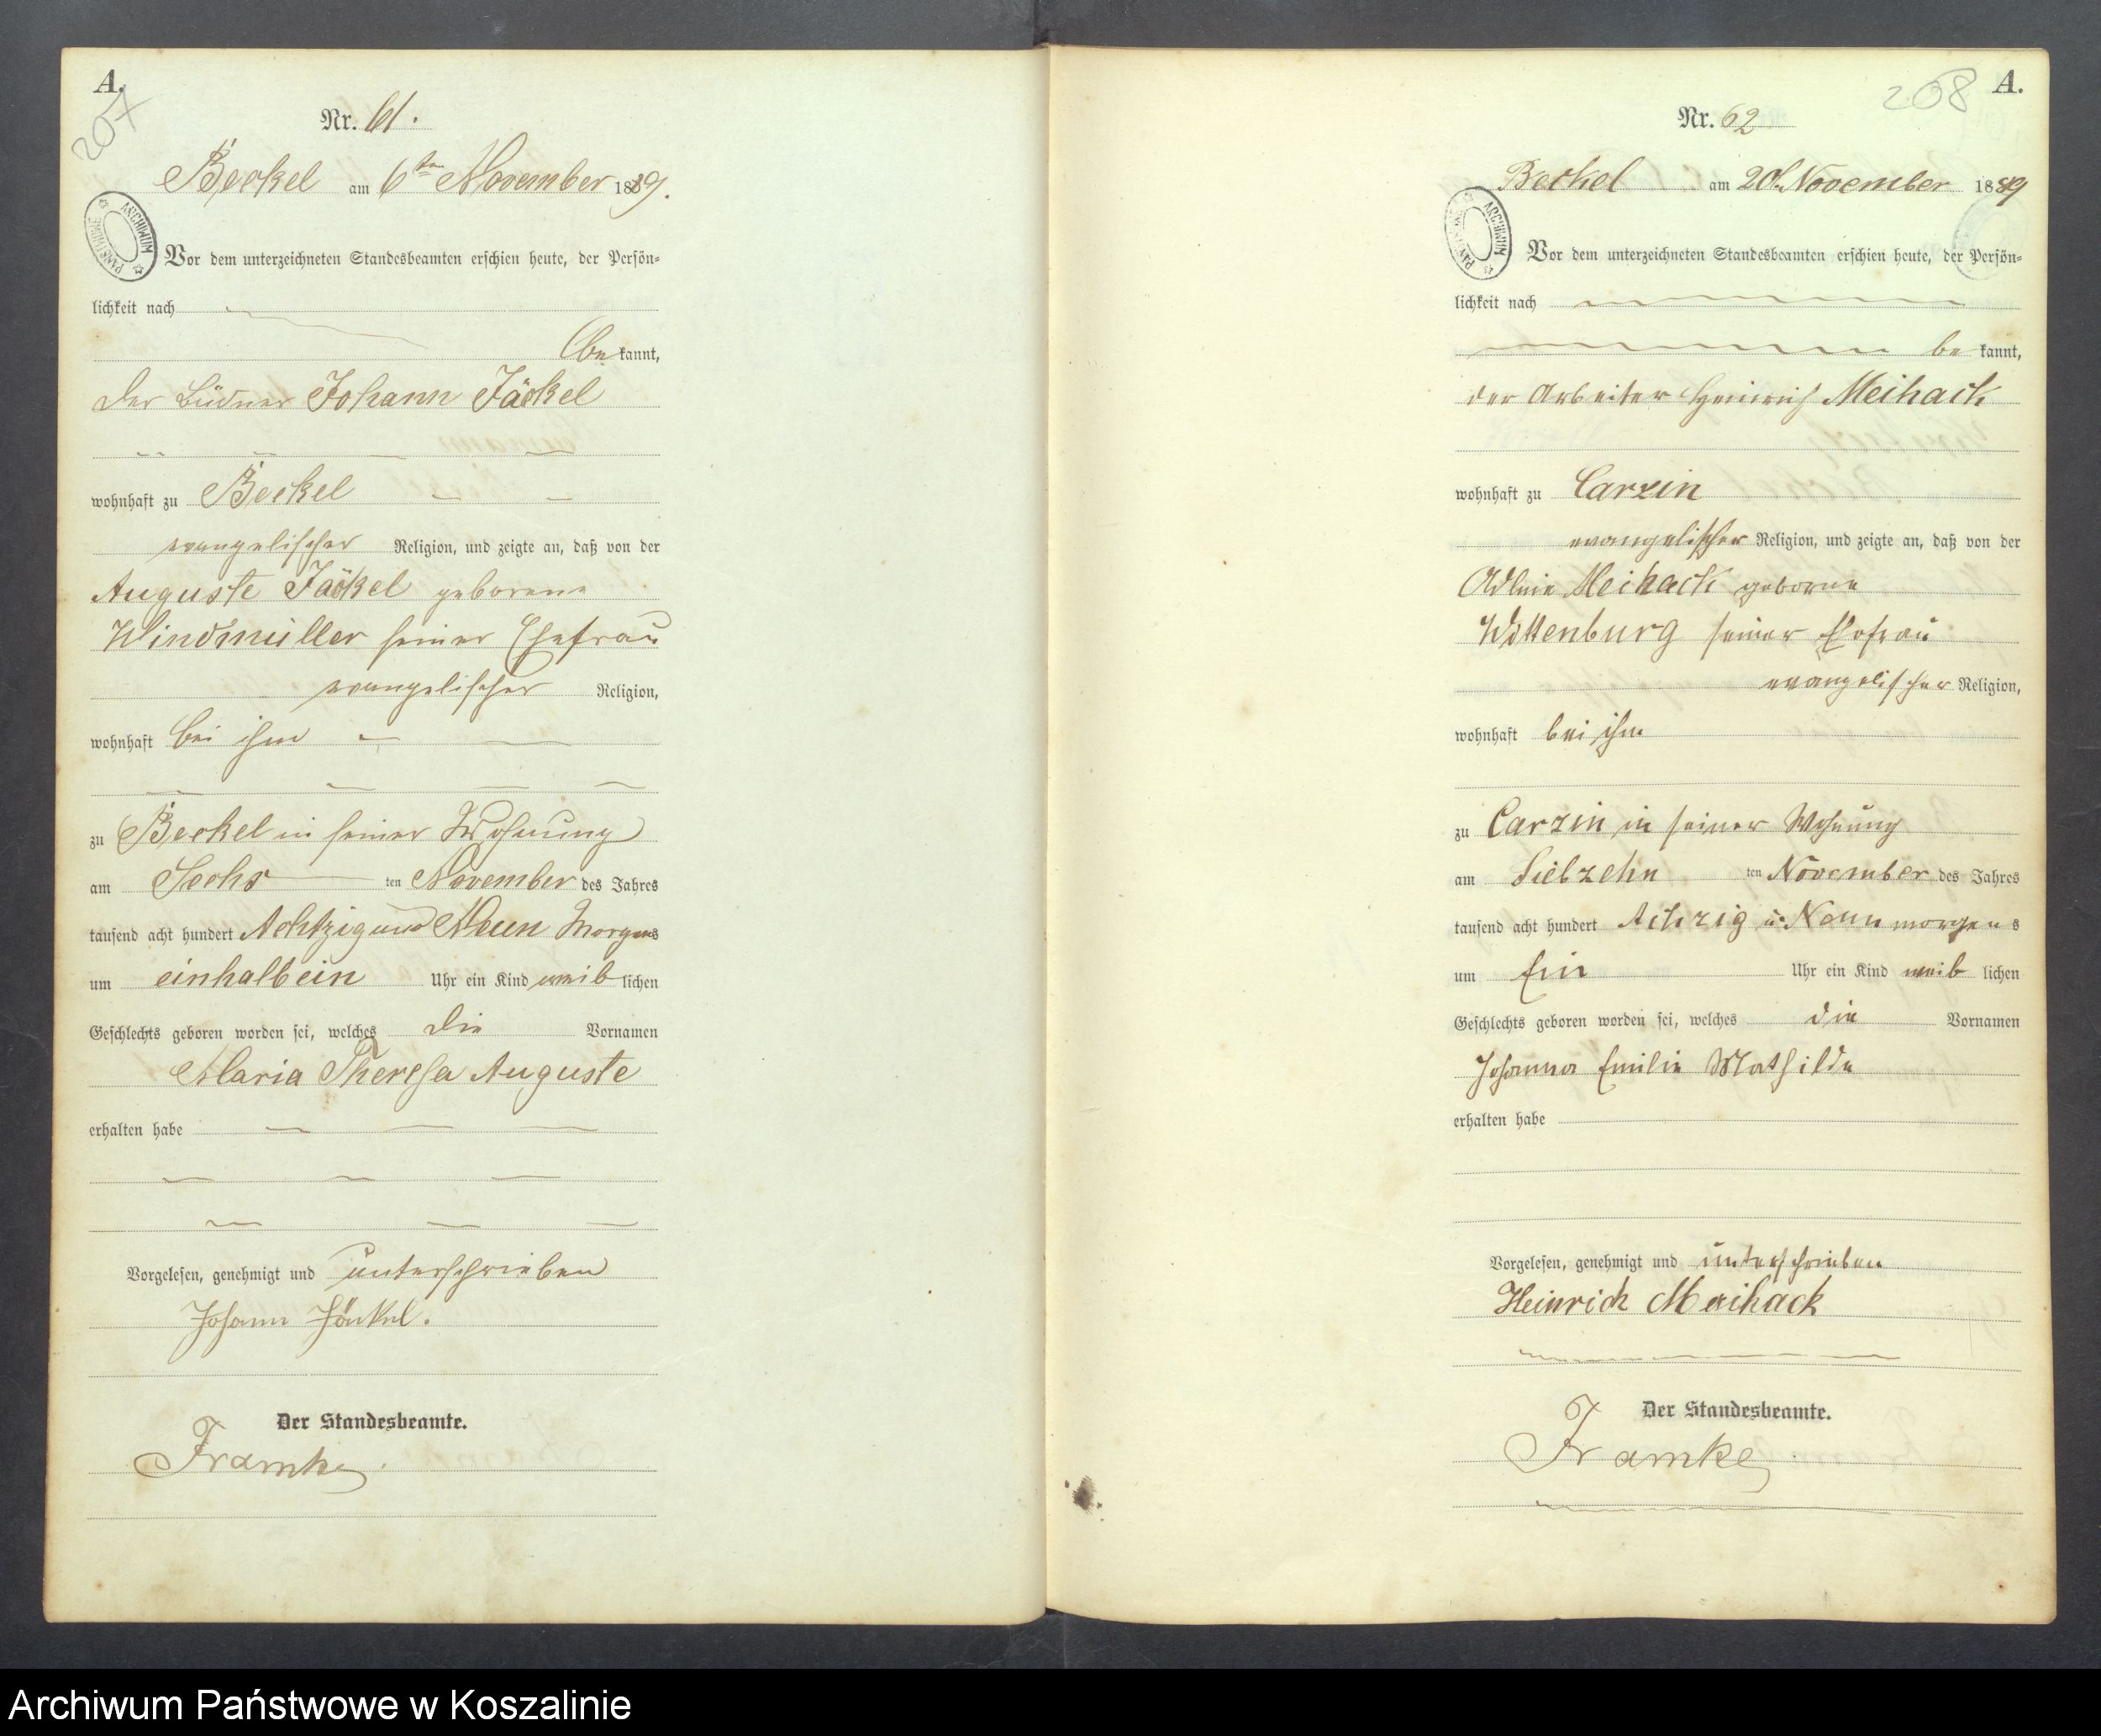 A.
207
Nr. 61.
Beckel am 6ten November 1889.
ARCHIWUM PAŃSTWOWE
Vor dem unterzeichneten Standesbeamten erschien heute, der Persön=
lichkeit nach
be kannt,
der Büdner Johann Jäckel
wohnhaft zu Beckel
evangelischer Religion, und zeigte an, daß von der
Auguste Jäckel geborene
Windmüller seiner Ehefrau
evangelischer Religion,
wohnhaft bei ihm
zu Beckel in seiner Wohnung
am Sechs ten November des Jahres
tausend acht hundert Achtzig und Neun Morgens
um einhalb ein Uhr ein Kind weib lichen
Geschlechts geboren worden sei, welches die Vornamen
Maria Theresa Auguste
erhalten habe
Vorgelesen, genehmigt und unterschrieben
Johann Jäckel.
Der Standesbeamte.
Framke
A.
208
Nr. 62
Beckel am 20t. November 1889
ARCHIWUM PAŃSTWOWE
Vor dem unterzeichneten Standesbeamten erschien heute, der Persön=
lichkeit nach
be kannt,
der Arbeiter Heinrich Meihack
wohnhaft zu Carzin
evangelischer Religion, und zeigte an, daß von der
Meihack geborne
Wittenburg seiner Ehefrau
evangelischer Religion,
wohnhaft bei ihm
zu Carzin in seiner Wohnung
am Siebzehn ten November des Jahres
tausend acht hundert Achzig u. Neun morgens
um Ein Uhr ein Kind weib lichen
Geschlechts geboren worden sei, welches die Vornamen
Johanna Emilie Mathilde
erhalten habe
Vorgelesen, genehmigt und unterschrieben
Heinrich Meihack
Der Standesbeamte.
Framke
Archiwum Państwowe w Koszalinie